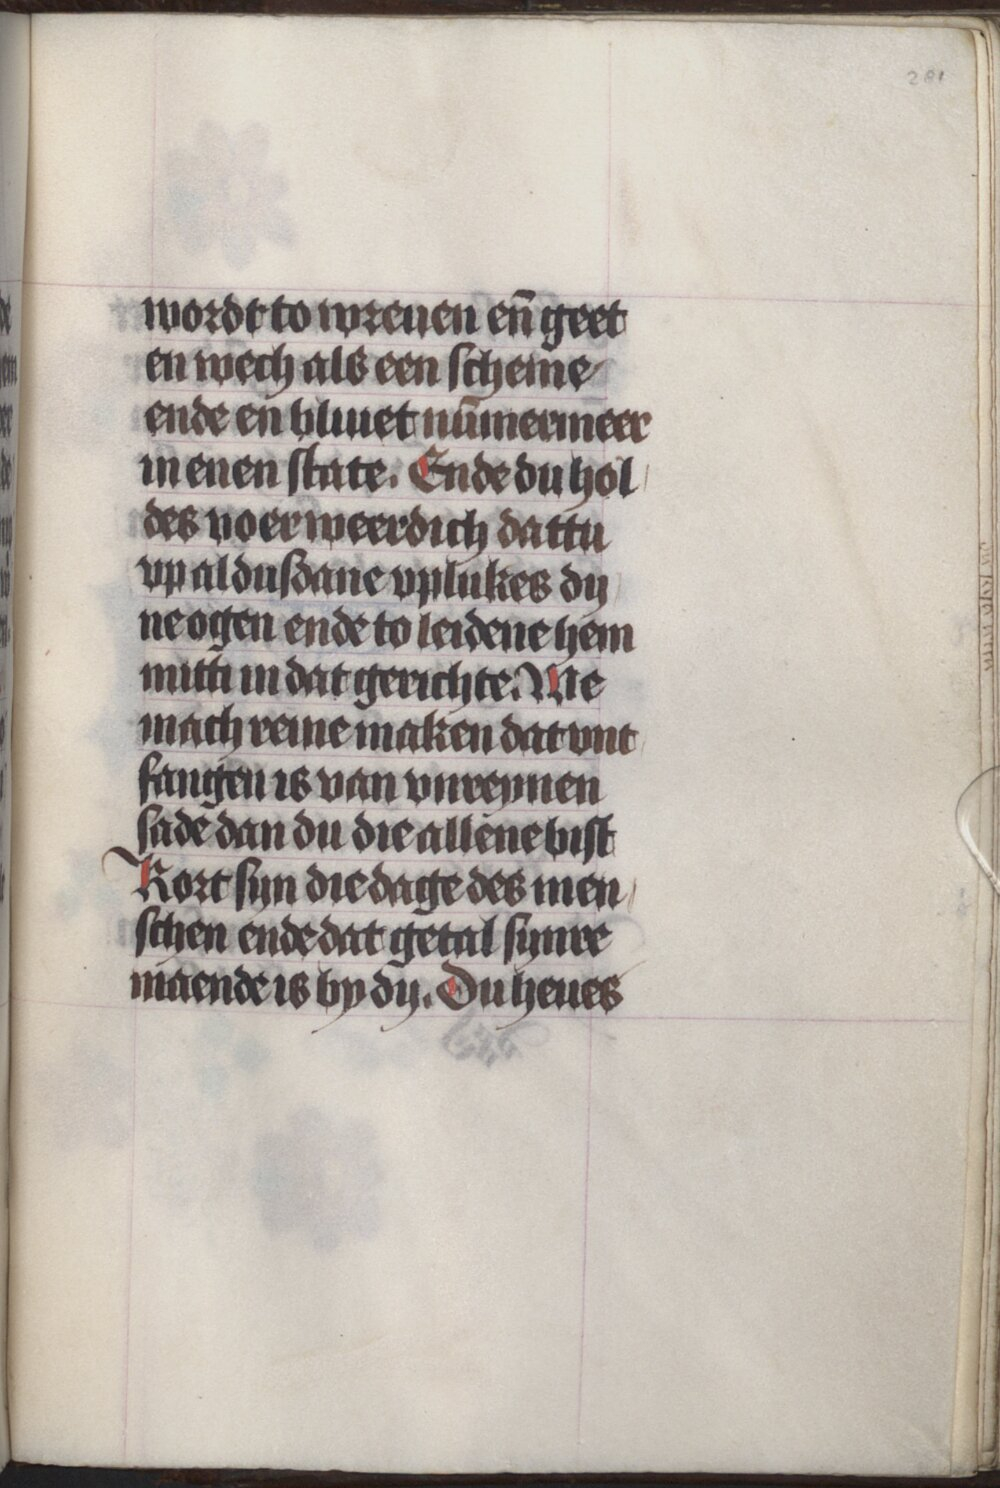 281
wordt to wreuen en̄ geet
en wech als een scheme
ende en bliuet nūmermeer
in enen state. Ende du hol
des voer weerdich dattu
vp aldusdane vplukes dy
ne ogen ende to leidene hem
mitti in dat gerichte. Wie
mach reine maken dat vnt
fangen is van vnreynen
sade dan du die allene bist
Kort syn die dage des men
schen ende dat getal synre
maende is by dy. Du heues